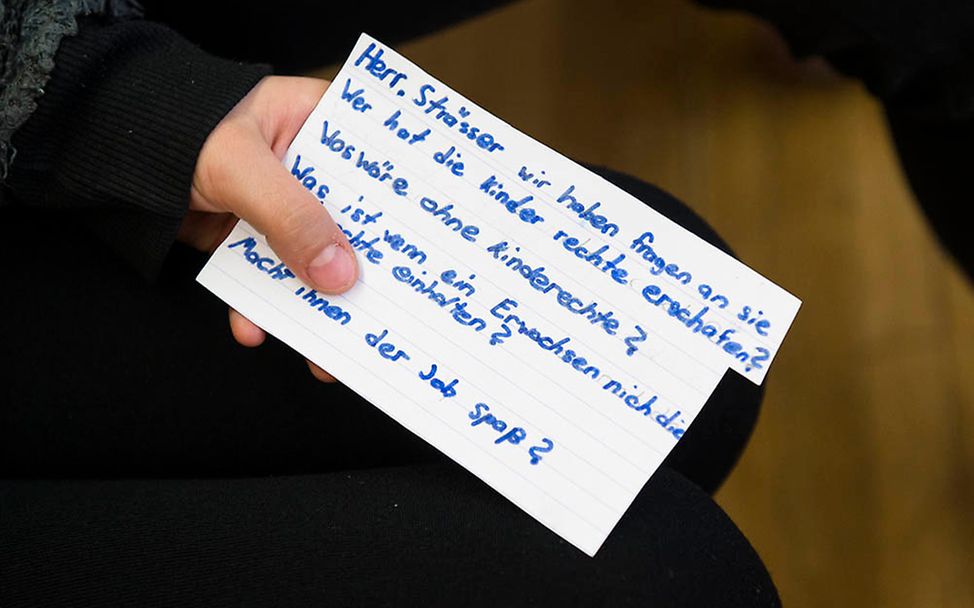 Herr. Strässer wir haben fragen an sie
Wer hat die kinder rechte erschafen?
Was wäre ohne kinderechte?
Was ist wenn ein Erwachsen nich die
chte einhalten?
Macht ihnen der Job Spaß?